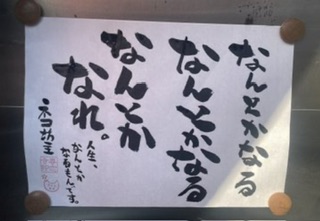 なんとかなる
なんとかなる
なんとか
なれ。
人生、
なんとか
なるもんです。
ネコ坊主